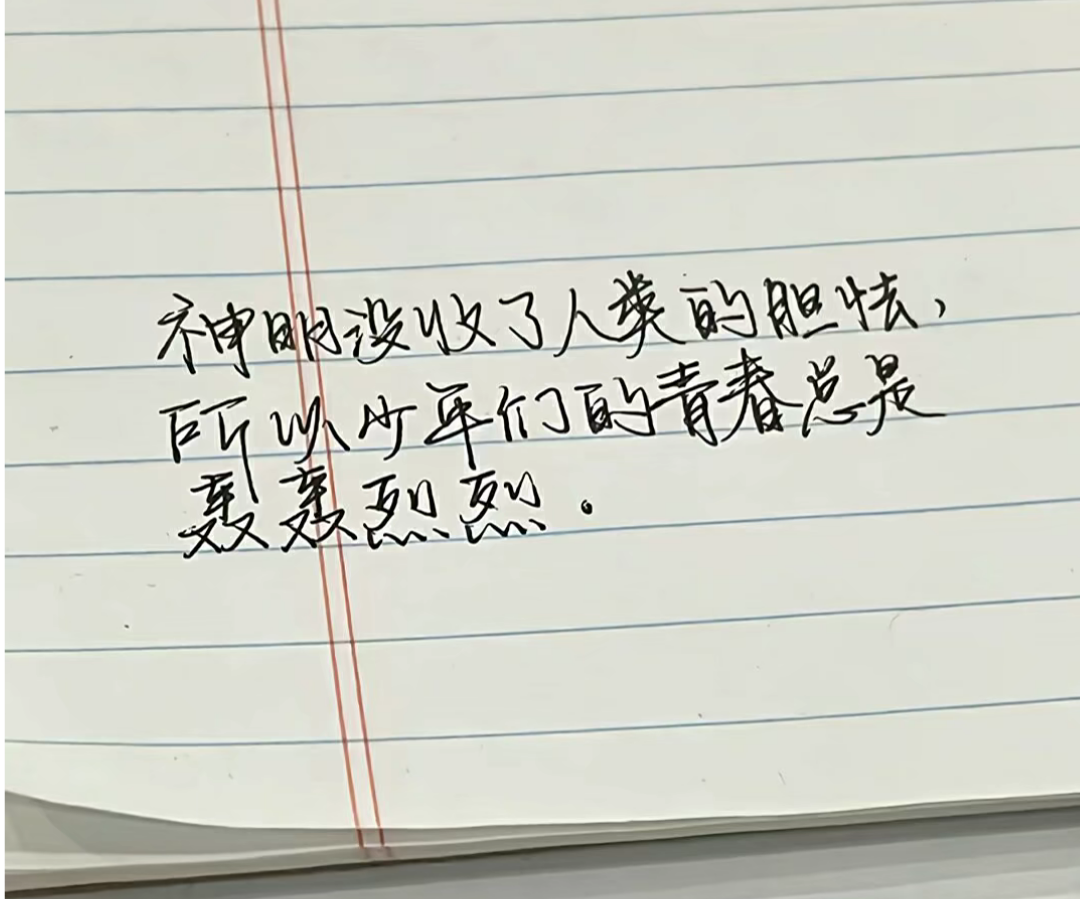 神明没收了人类的胆怯，
所以少年们的青春总是
轰轰烈烈.